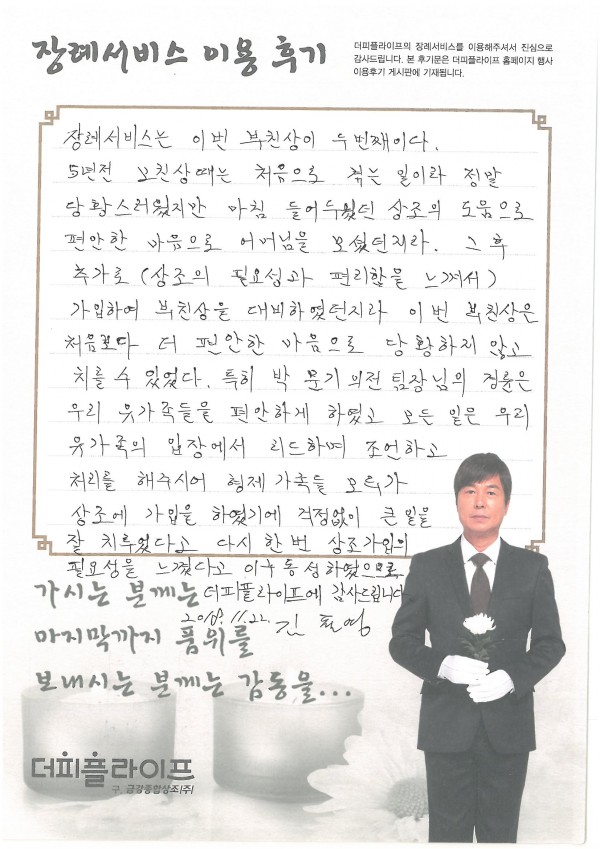 장례서비스 이용 후기
더피플라이프의 장례서비스를 이용해주셔서 진심으로
감사드립니다. 본 후기문은 더피플라이프 홈페이지 행사
이용후기 게시판에 기재됩니다.
장례서비스는 이번 부친상이 두번째이다.
5년전 모친상때는 처음으로 겪는 일이라 정말
당황스러웠지만 마침 들어두웠던 상조의 도움으로
편안한 마음으로 어머님을 모셨던지라. 그 후
추가로 (상조의 필요성과 편리함을 느껴서)
가입하여 부친상을 대비하였던지라 이번 부친상은
처음보다 더 편안한 마음으로 당황하지 않고
치를 수 있었다. 특히 박문기 의전팀장님의 경륜은
우리 유가족들을 편안하게 하였고 모든 일은 우리
유가족의 입장에서 리드하며 조언하고
처리를 해주시어 형제 가족들 모두가
상조에 가입을 하였기에 걱정없이 큰일을
잘 치루었다고 다시 한번 상조가입의
필요성을 느꼈다고 이구동성하였으므로
더피플라이프에 감사드립니다
11. 22. 김
가시는 분께는
마지막까지 품위를
보내시는 분께는 감동을...
더피플라이프
구. 금강종합상조(주)